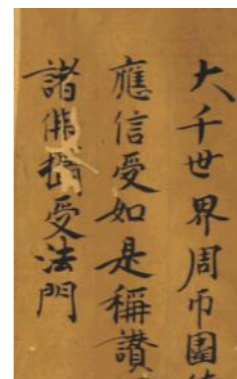 大千世界周帀圍
應信受如是稱讚
諸佛攝受法門